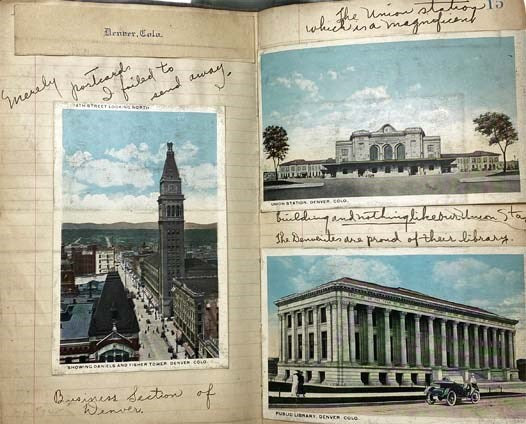 Denver, Colo.
Merely postcards
I failed to
send away.
16TH STREET LOOKING NORTH
SHOWING DANIELS AND FISHER TOWER, DENVER, COLO.
Business Section of
Denver.
15
The Union station
which is a magnificent
UNION STATION, DENVER, COLO.
building and nothing like our Union Sta
The Denverites are proud of their library.
PUBLIC LIBRARY, DENVER, COLO.